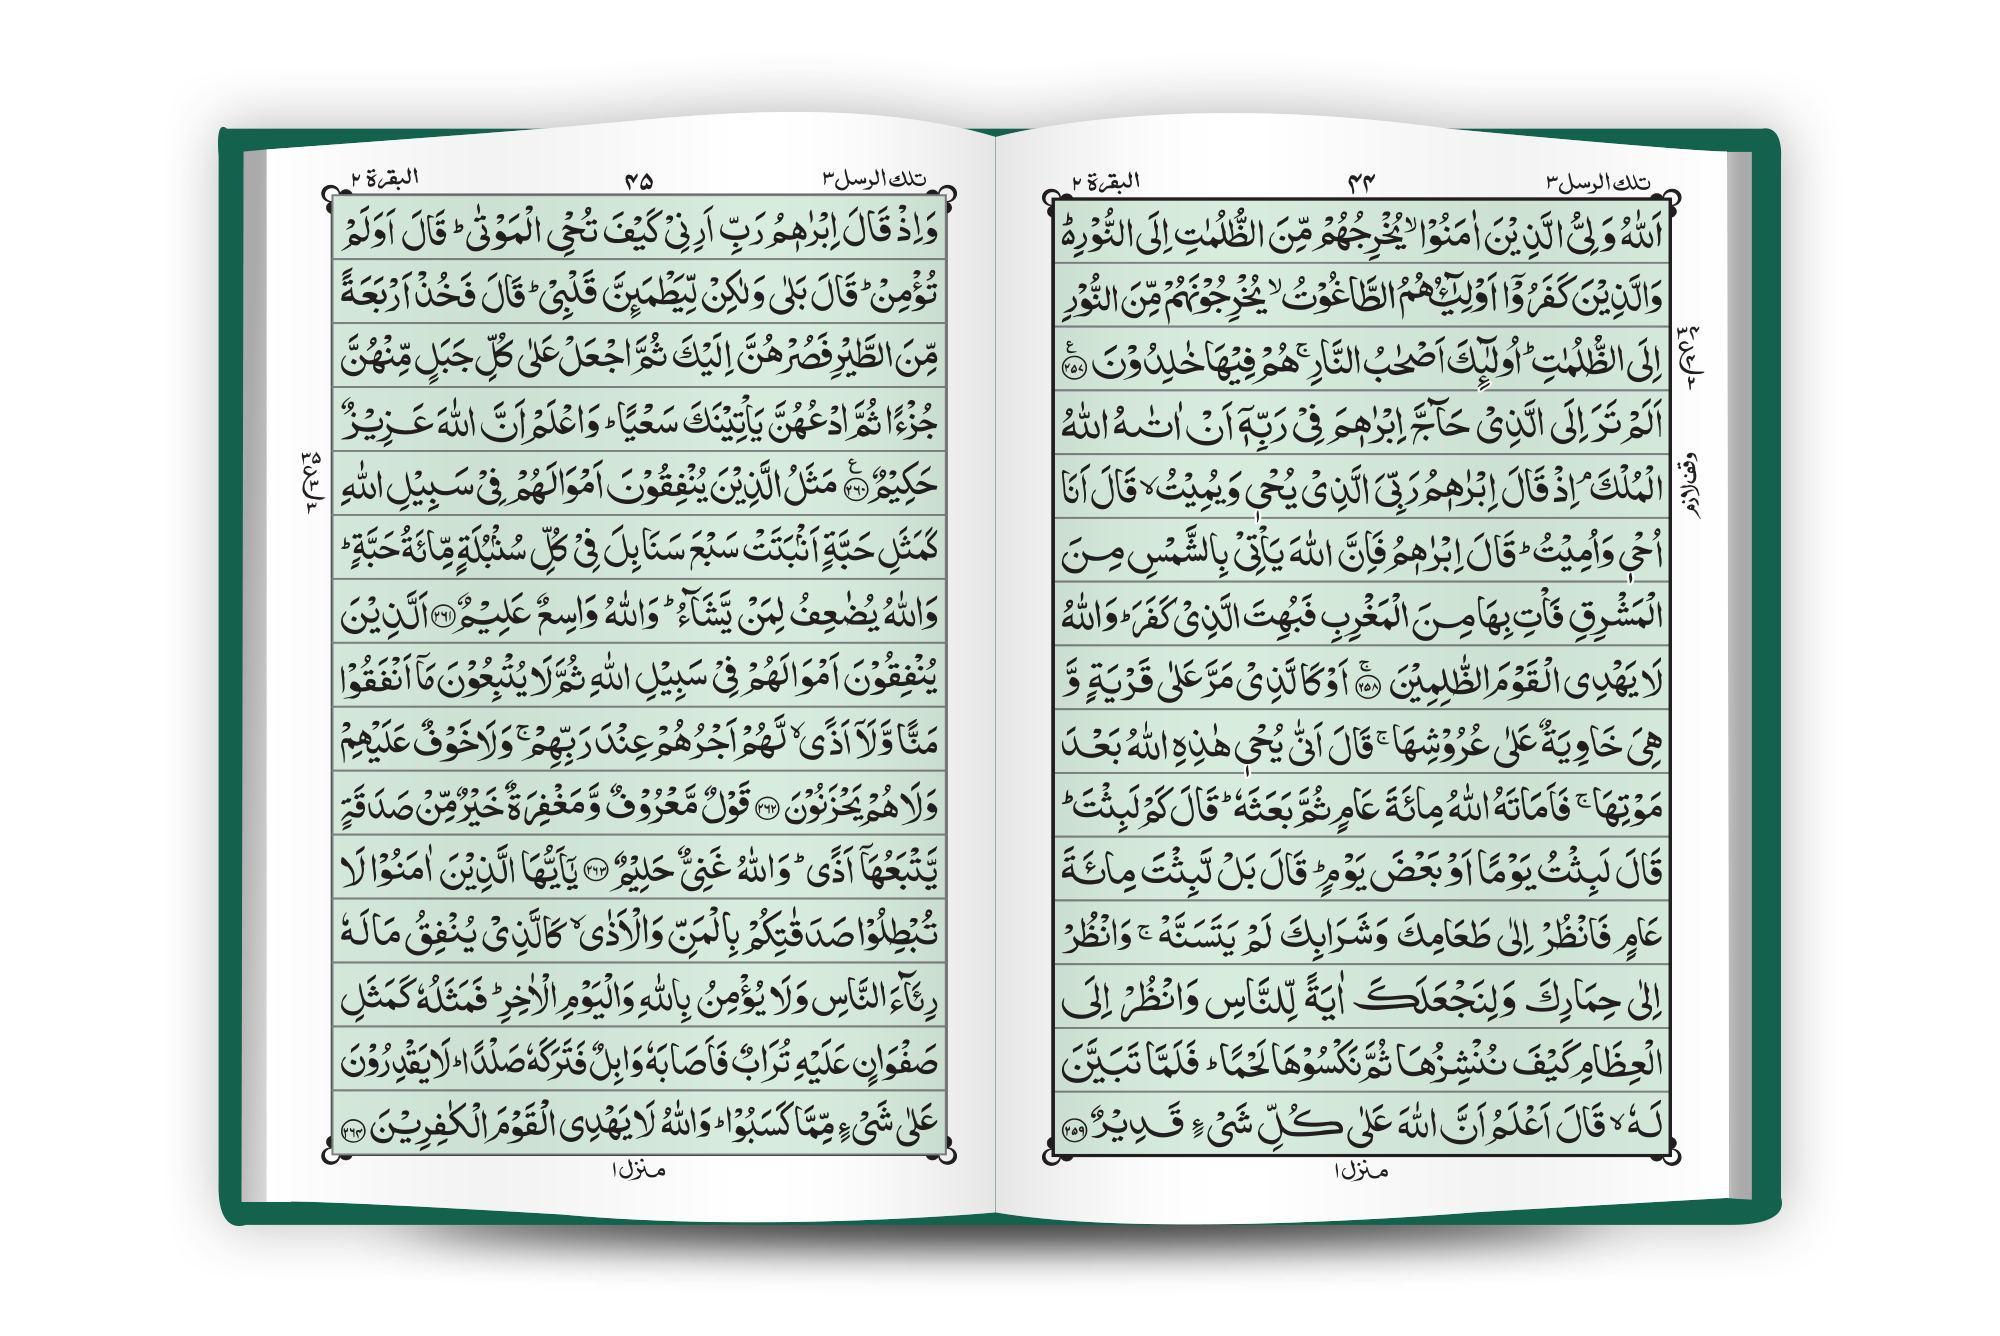 تلك الرسل ٣
۴۴
البقرة ٢
اَللّٰهُ وَلِيُّ الَّذِيْنَ اٰمَنُوْا ۙ يُخْرِجُهُمْ مِّنَ الظُّلُمٰتِ اِلَى النُّوْرِ ؕ۬
وَالَّذِيْنَ كَفَرُوْۤا اَوْلِيٰٓـُٔهُمُ الطَّاغُوْتُ ۙ يُخْرِجُوْنَهُمْ مِّنَ النُّوْرِ
اِلَى الظُّلُمٰتِ ؕ اُولٰٓىِٕكَ اَصْحٰبُ النَّارِ ۚ هُمْ فِيْهَا خٰلِدُوْنَ ﴿٢٥٧﴾ ع
اَلَمْ تَرَ اِلَى الَّذِيْ حَآجَّ اِبْرٰهٖمَ فِيْ رَبِّهٖۤ اَنْ اٰتٰىهُ اللّٰهُ
الْمُلْكَ ۘ اِذْ قَالَ اِبْرٰهٖمُ رَبِّيَ الَّذِيْ يُحْيٖ وَيُمِيْتُ ۙ قَالَ اَنَا
اُحْيٖ وَاُمِيْتُ ؕ قَالَ اِبْرٰهٖمُ فَاِنَّ اللّٰهَ يَاْتِيْ بِالشَّمْسِ مِنَ
الْمَشْرِقِ فَاْتِ بِهَا مِنَ الْمَغْرِبِ فَبُهِتَ الَّذِيْ كَفَرَ ؕ وَاللّٰهُ
لَا يَهْدِى الْقَوْمَ الظّٰلِمِيْنَ ۚ﴿٢٥٨﴾ اَوْ كَالَّذِيْ مَرَّ عَلٰى قَرْيَةٍ وَّ
هِيَ خَاوِيَةٌ عَلٰى عُرُوْشِهَا ۚ قَالَ اَنّٰى يُحْيٖ هٰذِهِ اللّٰهُ بَعْدَ
مَوْتِهَا ۚ فَاَمَاتَهُ اللّٰهُ مِائَةَ عَامٍ ثُمَّ بَعَثَهٗ ؕ قَالَ كَمْ لَبِثْتَ ؕ
قَالَ لَبِثْتُ يَوْمًا اَوْ بَعْضَ يَوْمٍ ؕ قَالَ بَلْ لَّبِثْتَ مِائَةَ
عَامٍ فَانْظُرْ اِلٰى طَعَامِكَ وَشَرَابِكَ لَمْ يَتَسَنَّهْ ۚ وَانْظُرْ
اِلٰى حِمَارِكَ وَلِنَجْعَلَكَ اٰيَةً لِّلنَّاسِ وَانْظُرْ اِلَى
الْعِظَامِ كَيْفَ نُنْشِزُهَا ثُمَّ نَكْسُوْهَا لَحْمًا ؕ فَلَمَّا تَبَيَّنَ
لَهٗ ۙ قَالَ اَعْلَمُ اَنَّ اللّٰهَ عَلٰى كُلِّ شَيْءٍ قَدِيْرٌ ﴿٢٥٩﴾
منزل ١
وقف لازم
تلك الرسل ٣
۴۵
البقرة ٢
وَاِذْ قَالَ اِبْرٰهٖمُ رَبِّ اَرِنِيْ كَيْفَ تُحْيِ الْمَوْتٰى ؕ قَالَ اَوَلَمْ
تُؤْمِنْ ؕ قَالَ بَلٰى وَلٰكِنْ لِّيَطْمَىِٕنَّ قَلْبِيْ ؕ قَالَ فَخُذْ اَرْبَعَةً
مِّنَ الطَّيْرِ فَصُرْهُنَّ اِلَيْكَ ثُمَّ اجْعَلْ عَلٰى كُلِّ جَبَلٍ مِّنْهُنَّ
جُزْءًا ثُمَّ ادْعُهُنَّ يَاْتِيْنَكَ سَعْيًا ؕ وَاعْلَمْ اَنَّ اللّٰهَ عَزِيْزٌ
حَكِيْمٌ ﴿٢٦٠﴾ ع مَثَلُ الَّذِيْنَ يُنْفِقُوْنَ اَمْوَالَهُمْ فِيْ سَبِيْلِ اللّٰهِ
كَمَثَلِ حَبَّةٍ اَنْۢبَتَتْ سَبْعَ سَنَابِلَ فِيْ كُلِّ سُنْۢبُلَةٍ مِّائَةُ حَبَّةٍ ؕ
وَاللّٰهُ يُضٰعِفُ لِمَنْ يَّشَآءُ ؕ وَاللّٰهُ وَاسِعٌ عَلِيْمٌ ﴿٢٦١﴾ اَلَّذِيْنَ
يُنْفِقُوْنَ اَمْوَالَهُمْ فِيْ سَبِيْلِ اللّٰهِ ثُمَّ لَا يُتْبِعُوْنَ مَاۤ اَنْفَقُوْا
مَنًّا وَّلَاۤ اَذًى ۙ لَّهُمْ اَجْرُهُمْ عِنْدَ رَبِّهِمْ ۚ وَلَا خَوْفٌ عَلَيْهِمْ
وَلَا هُمْ يَحْزَنُوْنَ ﴿٢٦٢﴾ قَوْلٌ مَّعْرُوْفٌ وَّمَغْفِرَةٌ خَيْرٌ مِّنْ صَدَقَةٍ
يَّتْبَعُهَاۤ اَذًى ؕ وَاللّٰهُ غَنِيٌّ حَلِيْمٌ ﴿٢٦٣﴾ يٰۤاَيُّهَا الَّذِيْنَ اٰمَنُوْا لَا
تُبْطِلُوْا صَدَقٰتِكُمْ بِالْمَنِّ وَالْاَذٰى ۙ كَالَّذِيْ يُنْفِقُ مَالَهٗ
رِئَآءَ النَّاسِ وَلَا يُؤْمِنُ بِاللّٰهِ وَالْيَوْمِ الْاٰخِرِ ؕ فَمَثَلُهٗ كَمَثَلِ
صَفْوَانٍ عَلَيْهِ تُرَابٌ فَاَصَابَهٗ وَابِلٌ فَتَرَكَهٗ صَلْدًا ؕ لَا يَقْدِرُوْنَ
عَلٰى شَيْءٍ مِّمَّا كَسَبُوْا ؕ وَاللّٰهُ لَا يَهْدِى الْقَوْمَ الْكٰفِرِيْنَ ﴿٢٦٤﴾
منزل ١